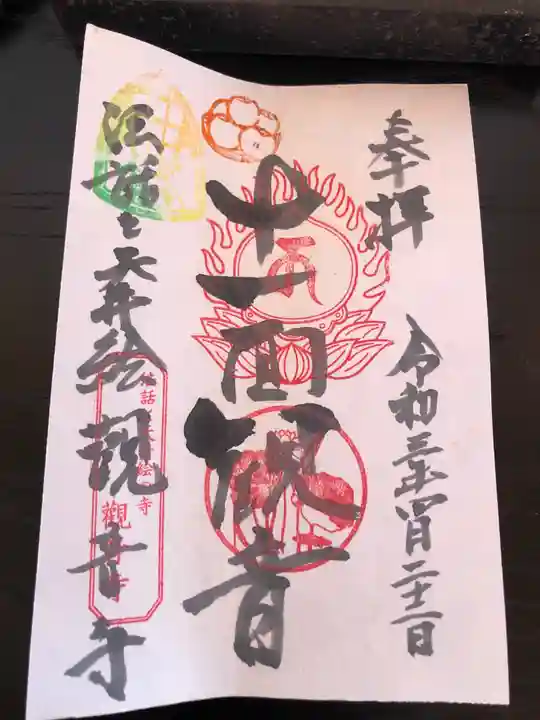 奉拝
令和三年四月二十二日
十一面観音
法話と天井絵観音寺
法話と天井絵の寺
觀音寺